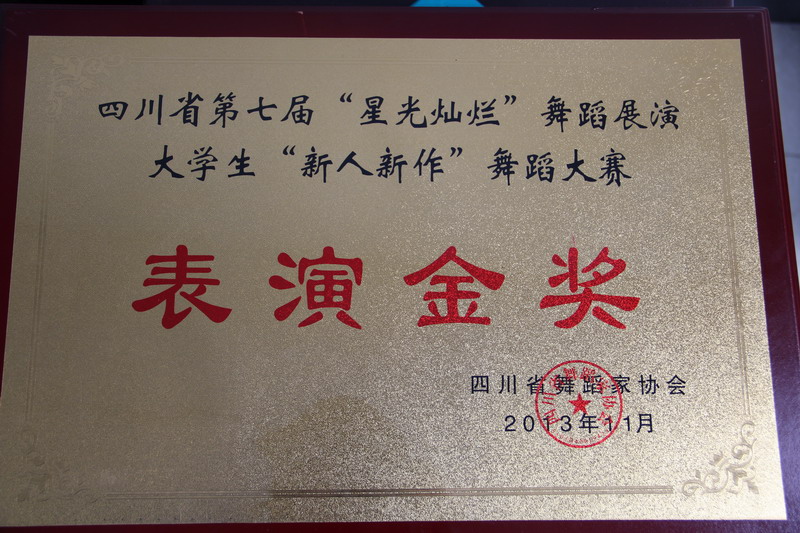 四川省第七届“星光灿烂”舞蹈展演
大学生“新人新作”舞蹈大赛
表演金奖
四川省舞蹈家协会
2013年11月